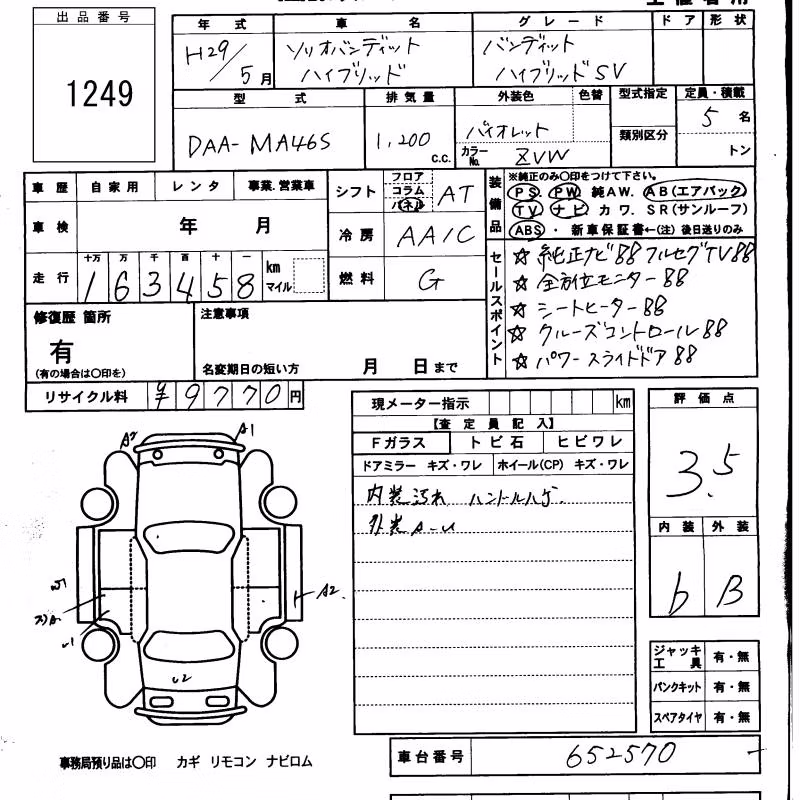 出品番号
1249
年 式 車 名 グレード ドア 形状
H29/5月 ソリオバンディット ハイブリッド バンディット ハイブリッドSV
型 式 排気量 外装色 色替 型式指定 定員・積載
DAA-MA46S 1,200 c.c. バイオレット 類別区分 5 名
カラーNo. ZVW トン
車歴 自家用 レンタ 事業.営業車
車検 年 月
走行 十万 万 千 百 十 一
1 6 3 4 5 8 km マイル
シフト フロア コラム パネル AT
冷房 AA/C
燃料 G
装備品 ※純正のみ〇印をつけて下さい。
PS PW 純AW. AB(エアバック)
TV ナビ カワ. SR(サンルーフ)
ABS ・ 新車保証書←(注)後日送りのみ
セールスポイント
☆ 純正ナビ88 フルセグTV88
☆ 全方位モニター88
☆ シートヒーター88
☆ クルーズコントロール88
☆ パワースライドドア88
修復歴 箇所
有
(有の場合は〇印を)
注意事項
名変期日の短い方 月 日まで
リサイクル料 ¥9770円
現メーター指示 km
【査定員記入】
Fガラス トビ石 ヒビワレ
ドアミラー キズ・ワレ ホイール(CP) キズ・ワレ
内装汚れ ハンドルハゲ.
外装A-U
評価点
3.5
内装 外装
b B
ジャッキ工具 有・無
パンクキット 有・無
スペアタイヤ 有・無
A1
A2.
U2
事務局預り品は〇印 カギ リモコン ナビロム
車台番号 652570